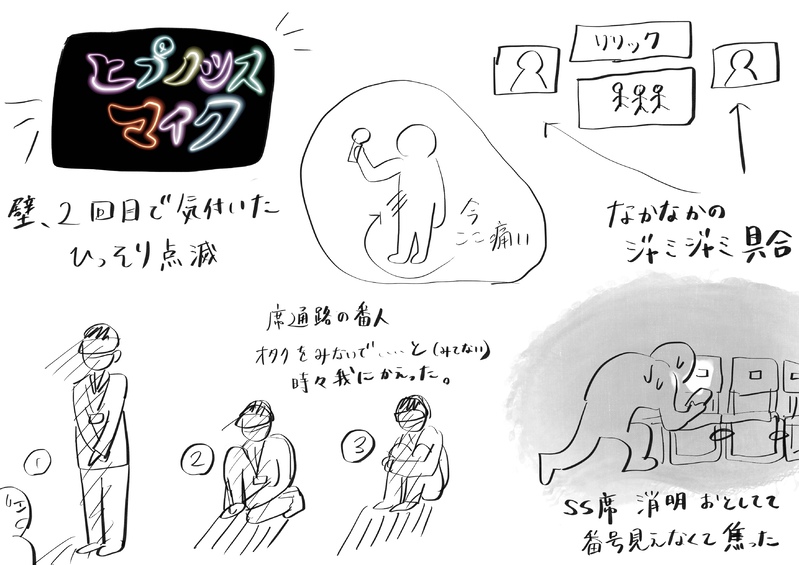 ヒプノッスス
マイク
壁、2回目で気付いた
ひっそり点滅
今
ここ痛い
リリック
なかなかの
ジャミジャミ具合
席通路の番人
オタクをみないで……と(みてない)
時々我にかえった。
①
②
③
SS席 消明おとしてて
番号見えなくて焦った